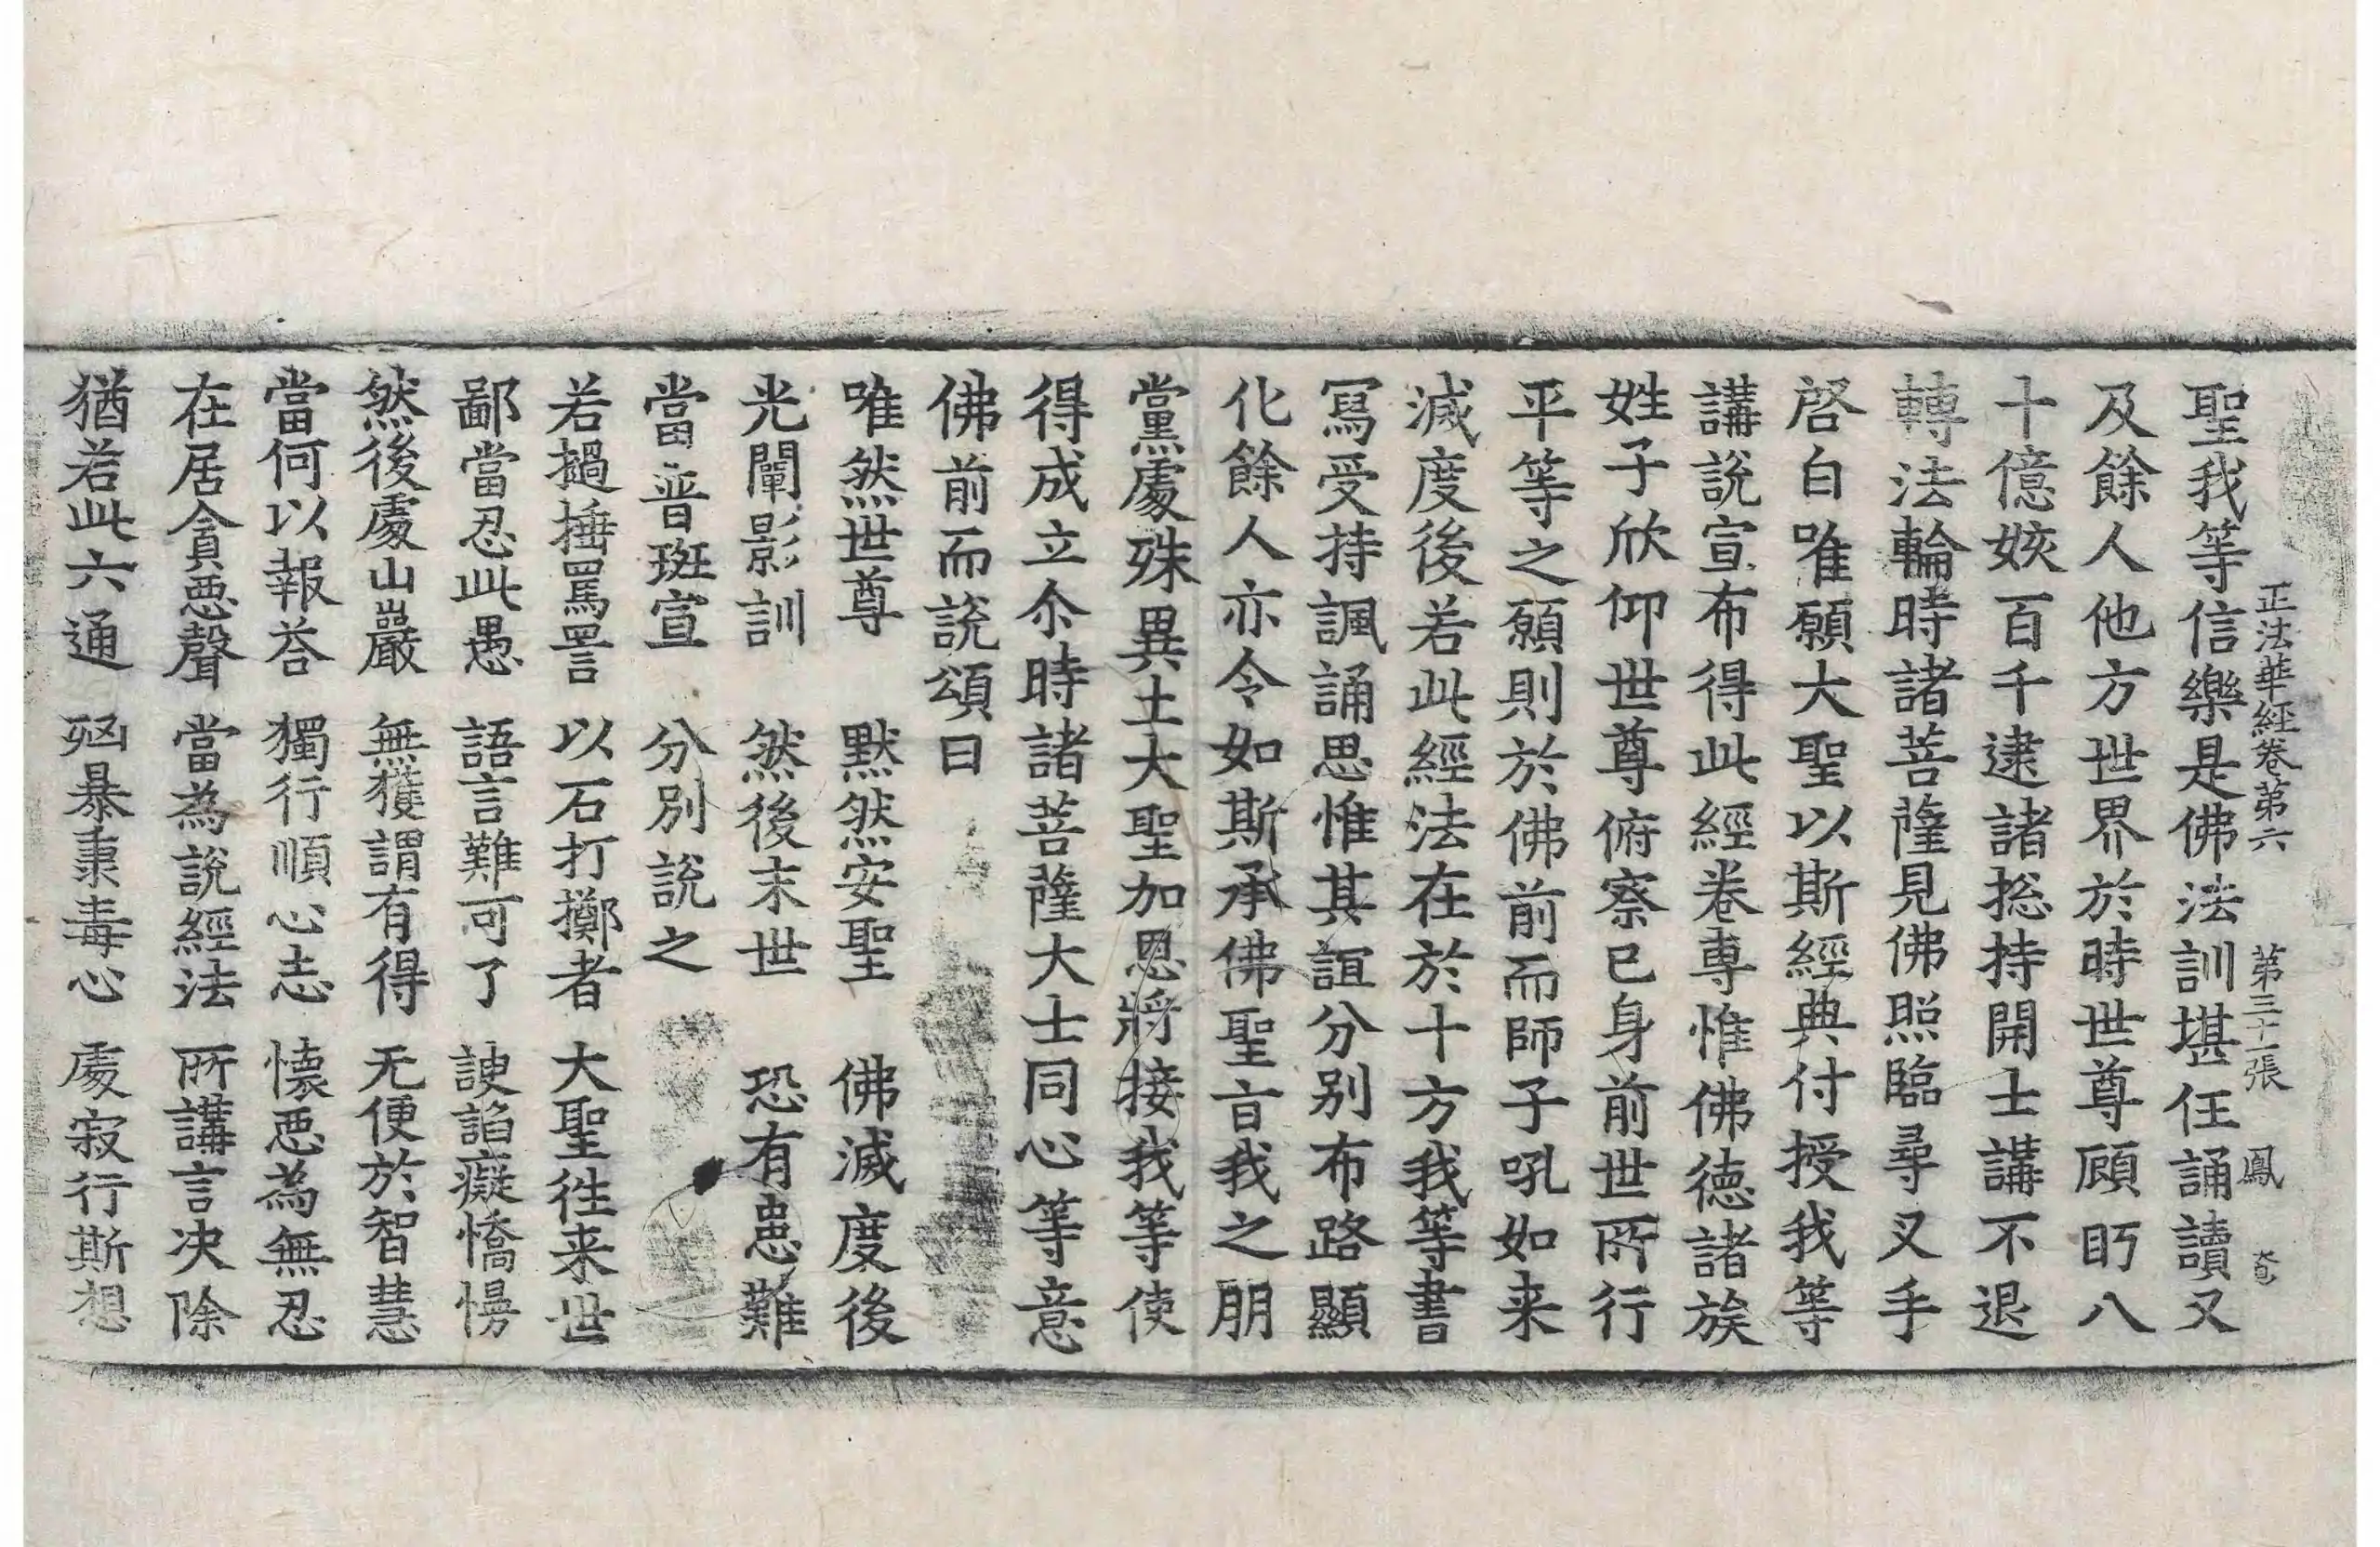 正法華經卷第六 第三十一張 鳳
聖我等信樂是佛法訓堪任誦讀又
及餘人他方世界於時世尊顧眄八
十億姟百千逮諸揔持開士講不退
轉法輪時諸菩薩見佛照臨尋叉手
啓白唯願大聖以斯經典付授我等
講說宣布得此經卷專惟佛德諸族
姓子欣仰世尊俯察已身前世所行
平等之願則於佛前而師子吼如来
滅度後若此經法在於十方我等書
寫受持諷誦思惟其誼分別布路顯
化餘人亦令如斯承佛聖旨我之朋
黨處殊異土大聖加恩將接我等使
得成立尒時諸菩薩大士同心等意
佛前而說頌曰
唯然世尊 默然安聖 佛滅度後
光闡影訓 然後末世 恐有患難
當普班宣 分別說之
若撾捶罵詈 以石打擲者 大聖往来世
鄙當忍此愚 語言難可了 諛諂癡憍慢
然後處山巖 無獲謂有得 无便於智慧
當何以報荅 獨行順心志 懷惡為無忍
在居貪惡聲 當為說經法 所講言决除
猶若此六通 兇暴秉毒心 處寂行斯想